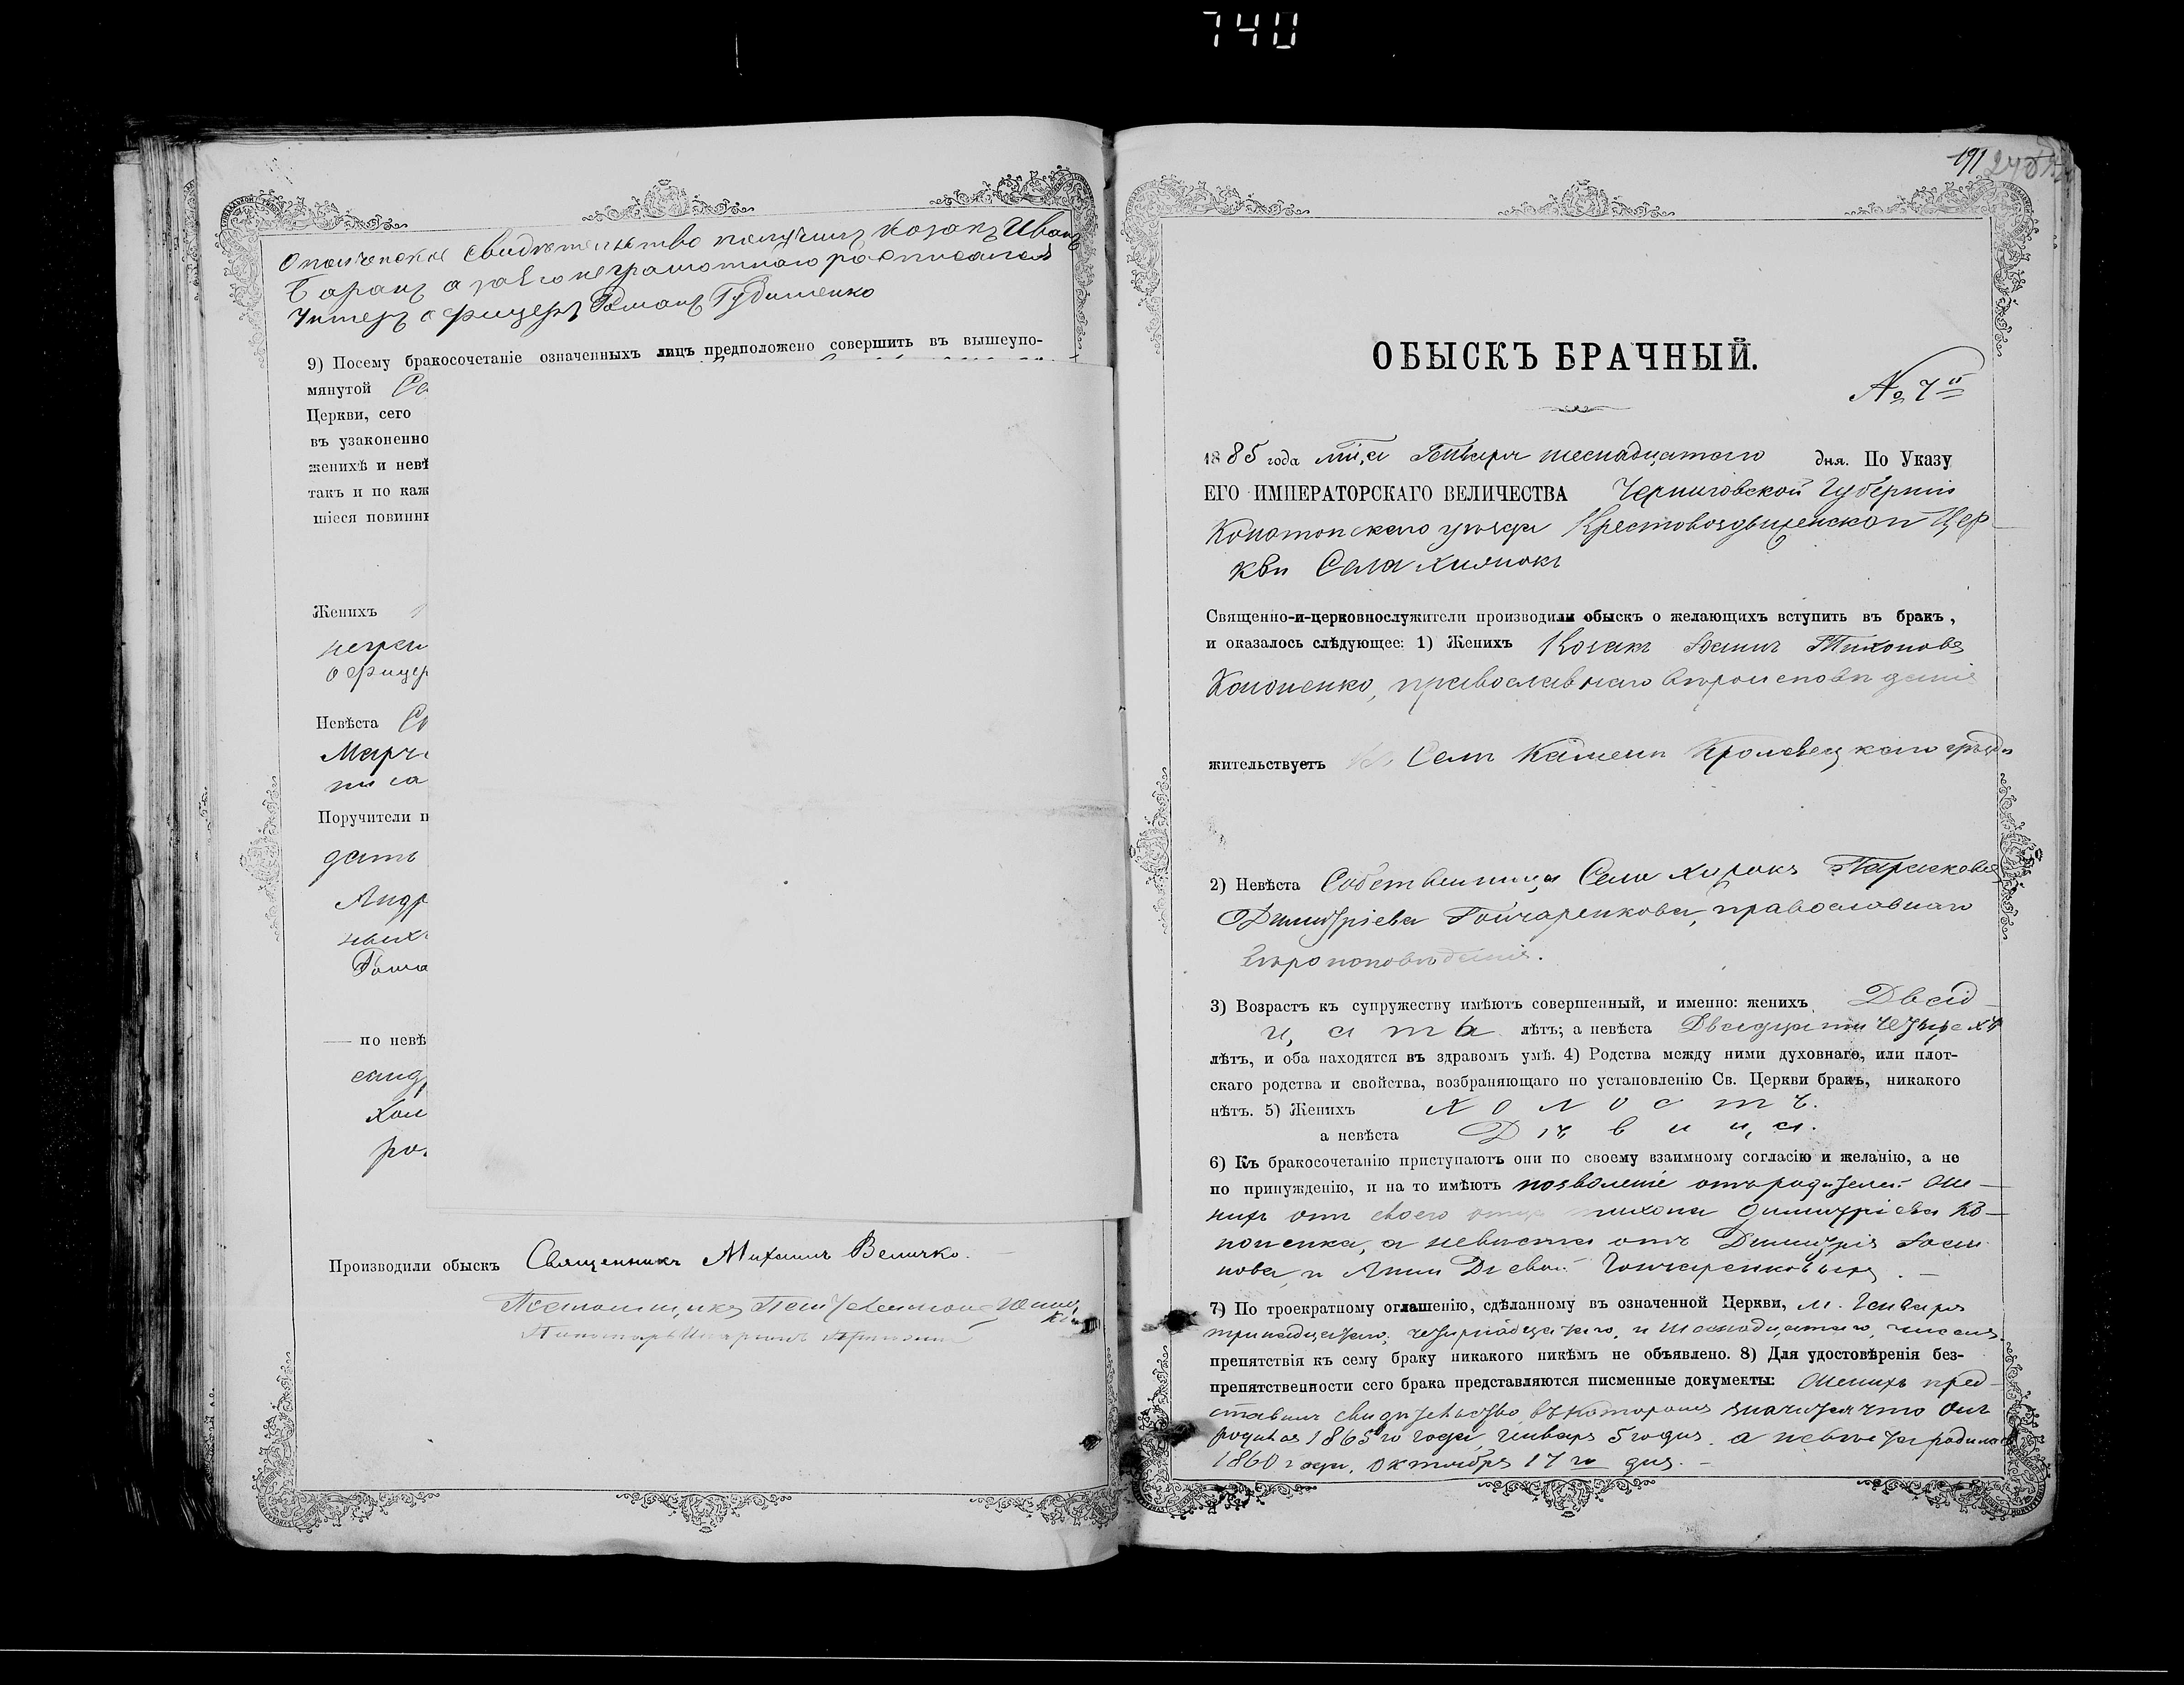 740
Ополченское свидѣтельство получилъ козакъ Иванъ
Баранъ а за его неграмотного росписался
Унтеръ офицеръ Романъ Гудименко
9) Посему бракосочетаніе означенныхъ лицъ предположено совершить въ вышеупо-
мянутой
Церкви, сего
въ узаконенно
женихѣ и невѣ
такъ и по каж
шіеся повинны
Женихъ
неграм
офицер
Невѣста
Марч
писа
Поручители п
дать
Андр
ныхъ
Рома
— по невѣ
санд
Хом
рос
Производили обыскъ Священникъ Михаилъ Величко.
191
ОБЫСКЪ БРАЧНЫЙ.
№ 7й
1885 года мѣ,ца Генваря шеснадцатого дня. По Указу
ЕГО ИМПЕРАТОРСКАГО ВЕЛИЧЕСТВА Черниговской Губерніи
Конотопскаго уѣзда Крестовоздвиженской Цер-
кви Села
Священно-и-церковнослужители производили обыскъ о желающихъ вступить въ бракъ,
и оказалось слѣдующее: 1) Женихъ Козакъ Іоаннъ Тихоновъ
Кононенко, православнаго вѣроисповѣданія
жительствуетъ въ Селѣ Камени Кролевецкаго уѣзда
2) Невѣста Собственница Села Параскева
Димитріева Гончаренкова, православнаго
вѣроисповѣданія.
3) Возрастъ къ супружеству имѣютъ совершенный, и именно: женихъ Двад-
цать лѣтъ; а невѣста Двадцати четырехъ
лѣтъ, и оба находятся въ здравомъ умѣ. 4) Родства между ними духовнаго, или плот-
скаго родства и свойства, возбраняющаго по установленію Св. Церкви бракъ, никакого
нѣтъ. 5) Женихъ холостъ.
а невѣста Дѣвица.
6) Къ бракосочетанію приступаютъ они по своему взаимному согласію и желанію, а не
по принужденію, и на то имѣютъ позволеніе отъ родителей: Же-
нихъ отъ своего отца Тихона Димитріева Ко-
ноненка, а невѣста отъ Димитрія
и Анны Гончаренковыхъ.
7) По троекратному оглашенію, сдѣланному въ означенной Церкви, м. Генваря
тринадцатаго, четырнадцатаго, и шеснадцатаго, числа
препятствія къ сему браку никакого никѣмъ не объявлено. 8) Для удостовѣренія без-
препятственности сего брака представляются писменные документы: Женихъ пред-
ставилъ свидѣтельство, въ которомъ значится что онъ
родился 1865го года, Генваря 5 го дня. а невѣста родилась
1860 года, октября 17 го дня. —